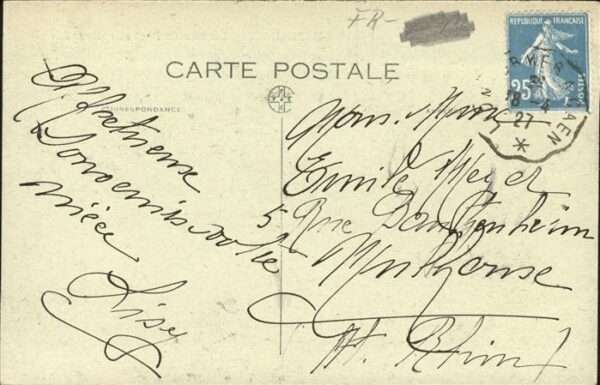 FR-
CARTE POSTALE
CORRESPONDANCE
REPUBLIQUE FRANÇAISE
25
POSTES
CAEN
8-4
27
*
Affectueux
Souvenirs votre
nièce
Lisy
Mons. Mme
Emile Meyer
5 Rue Bantzenheim
Mulhouse
Ht. Rhin